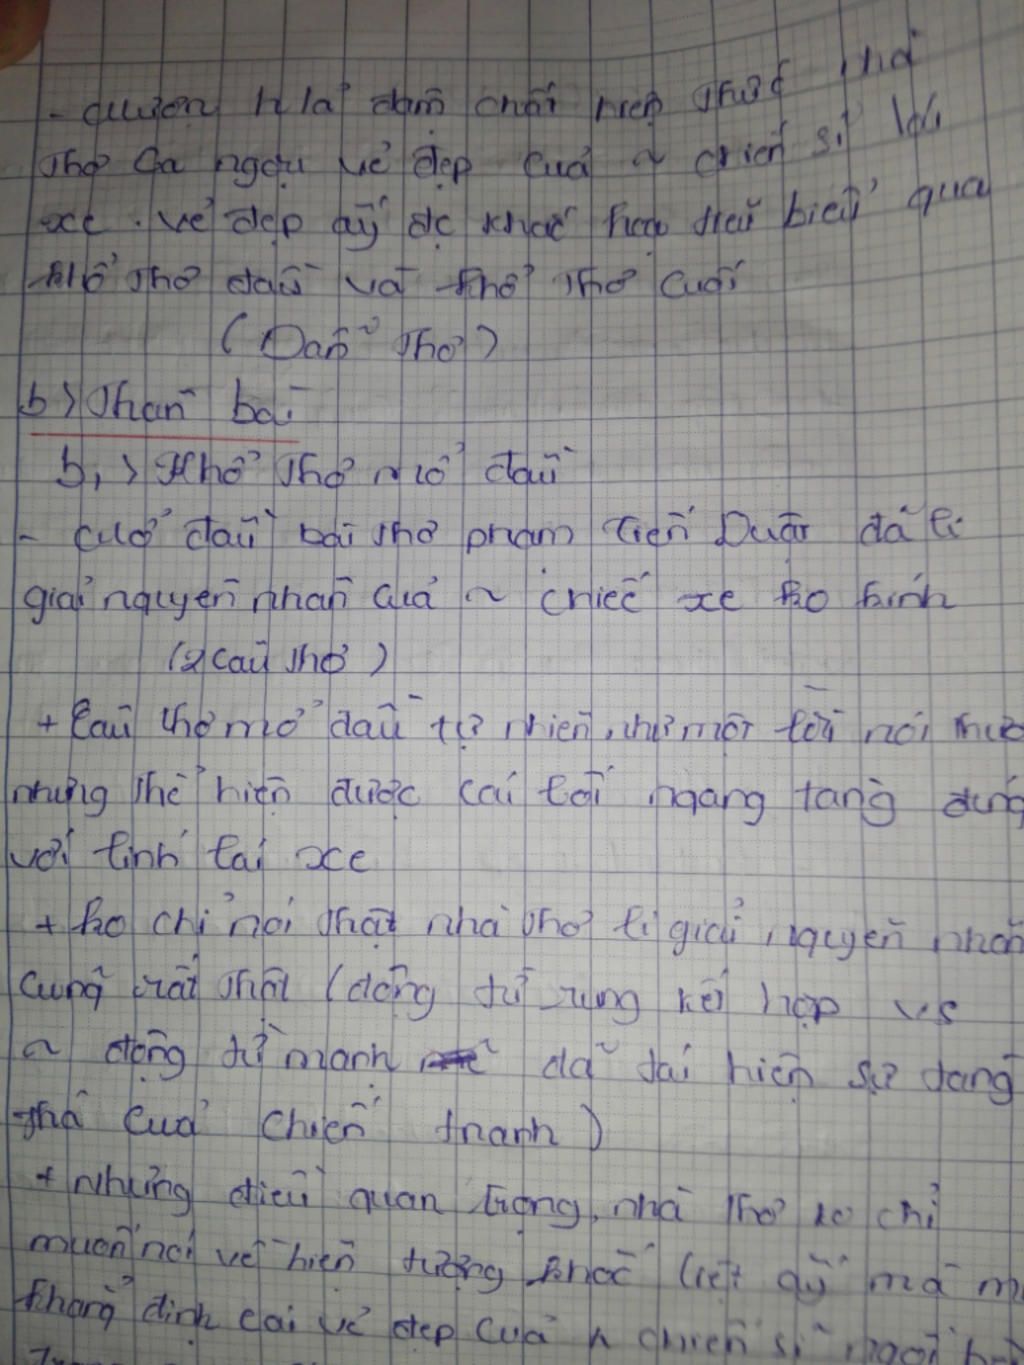 - giọng đậm chất hiện thực nhà
thơ ca ngợi vẻ đẹp của ~ chiến sĩ lái
xe. vẻ đẹp ấy đc khắc họa tiêu biểu qua
khổ thơ đầu và khổ thơ cuối
( Dẫn thơ )
b) Thân bài
b, ) Khổ thơ mở đầu
- mở đầu bài thơ phạm Tiến Duật đã lí
giải nguyên nhân của ~ chiếc xe ko kính
(2 câu thơ )
+ Câu thơ mở đầu tự nhiên, như một lời nói
nhưng thể hiện được cái lối ngang tàng đúng
với lính lái xe
+ ko chỉ nói thật nhà thơ lí giải nguyên nhân
cũng rất thật (động từ rung kết hợp vs
~ động từ mạnh đã tái hiện sự
phá của chiến tranh )
+ nhưng điều quan trọng, nhà thơ ko chỉ
muốn nói về hiện tượng khốc liệt ấy mà
khẳng định cái vẻ đẹp của chiến sĩ